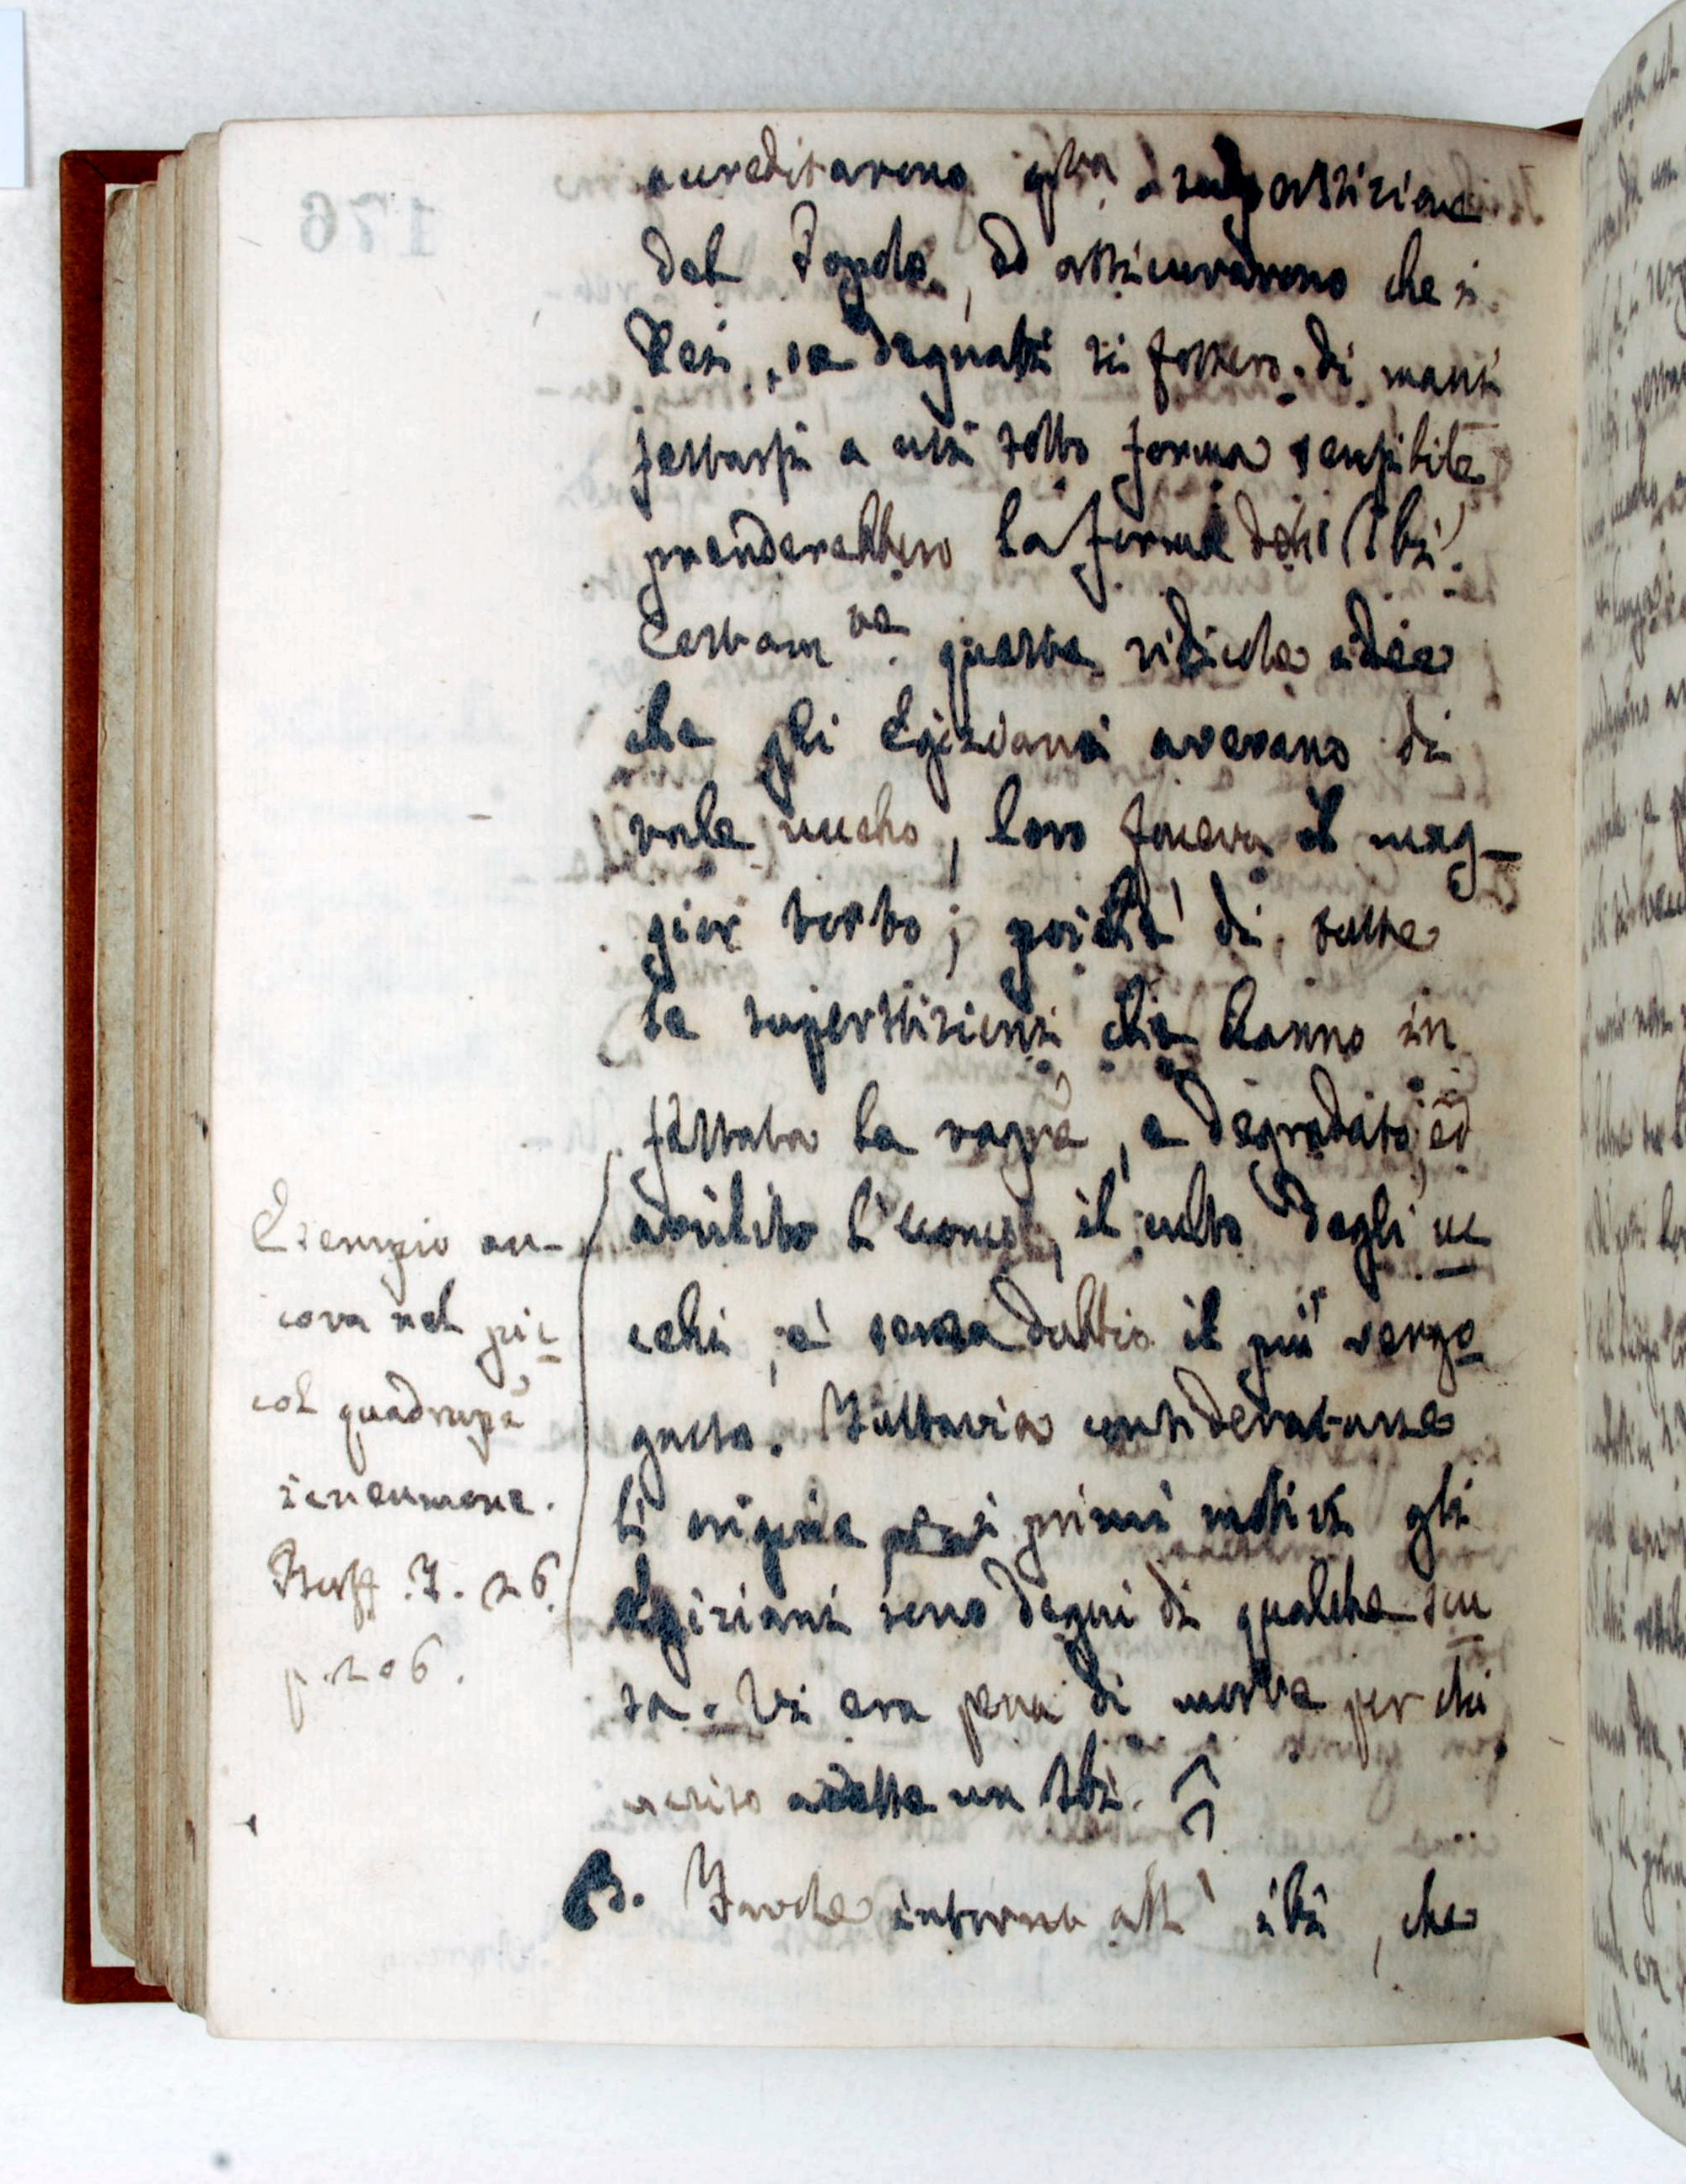 accreditarono qsta superstizione
del Popolo, ed assicurarono che i
Dei, se degnati si fossero di mani
festarsi a noi sotto forma sensibile
prenderebbero la forma dell' Ibi.
Certam.te questa ridicola idea
che gli Egiziani avevano di
tale uccello, loro faceva il mag-
gior torto; poichè di tutte
le superstizioni che hanno in
fettata la ragne, e degradato, ed
avvilito l'uomo, il culto degli uc
celli, è senza dubbio il più vergo
gnoso. Tuttavia considerat-asse
l'origine e i primi motivi gli
Egiziani sono degni di qualche scu
sa. Vi era pena di morte per chi
ucciso avesse un Ibi.
B. Favole intorno all' ibi, che
Esempio an-
cora nel pic
col quadrupe
icneumone.
Buff. T. 26.
p. 206.
176